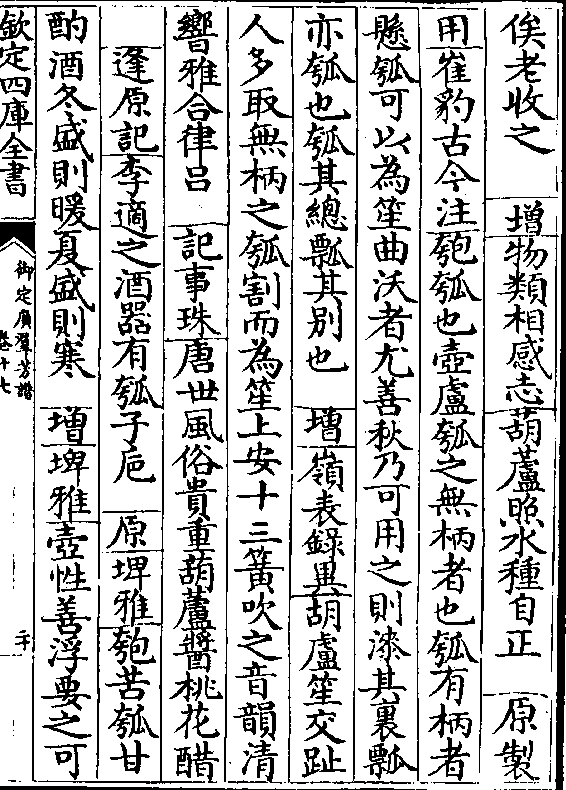 俟老收之　增物類相感志葫蘆照水種自正　原製
用崔豹古今注匏瓠也壺盧瓠之無柄者也瓠有柄者
懸瓠可以為笙曲沃者尤善秋乃可用之則漆其裏瓢
亦瓠也瓠其總瓢其别也　增嶺表錄異胡盧笙交趾
人多取無柄之瓠割而為笙上安十三簧吹之音韻清
響雅合律吕　記事珠唐世風俗貴重葫蘆醬桃花醋
逢原記李適之酒器有瓠子巵　原埤雅匏苦瓠甘
酌酒冬盛則暖夏盛則寒　增埤雅壺性善浮要之可
欽定四庫全書
御定廣羣芳譜
卷十七
二十